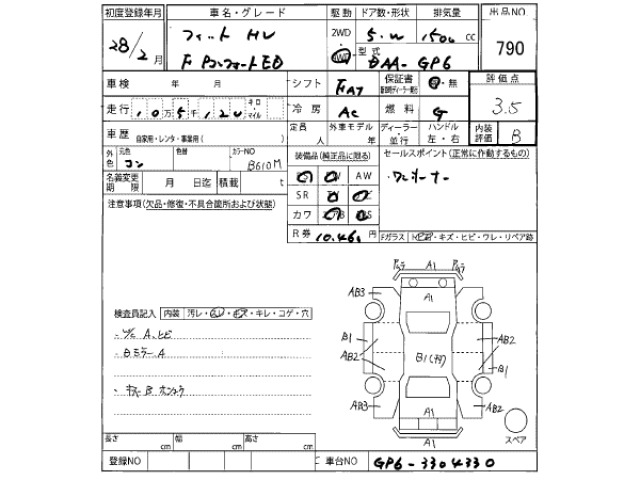 初度登録年月 車名・グレード 駆動 ドア数・形状 排気量 出品NO
28/2月 フィット HV 2WD 5.W 1500cc 790
4WD 型式
F DAA-GP6
車検 年 月 シフト FAT 保証書 有・無 評価点
走行 10万5千120 キロ・マイル 冷房 AC 燃料 G 3.5
車歴 自家用・レンタ・事業用( ) 定員 人 外車モデル 年 ディーラー・並行 ハンドル 左・右 内装評価 B
外色 元色 コン 色替 カラーNO B610M 装備品(純正品に限る) セールスポイント(正常に作動するもの)
名義変更期限 月 日迄 積載 t AW ワンオーナー
注意事項(欠品・修復・不具合箇所および状態) SR
カワ
R券 10,460円 Fガラス ・キズ・ヒビ・ワレ・リペア跡
A1
AB3 A1
検査員記入 内装 汚レ・ ・キズ・キレ・コゲ・穴
B1 AB2 AB2
Bミラー A B1 B1
AB2
AB3 AB2
A1 スペア
長さ cm 幅 cm 高さ cm
登録NO 車台NO GP6-3304330